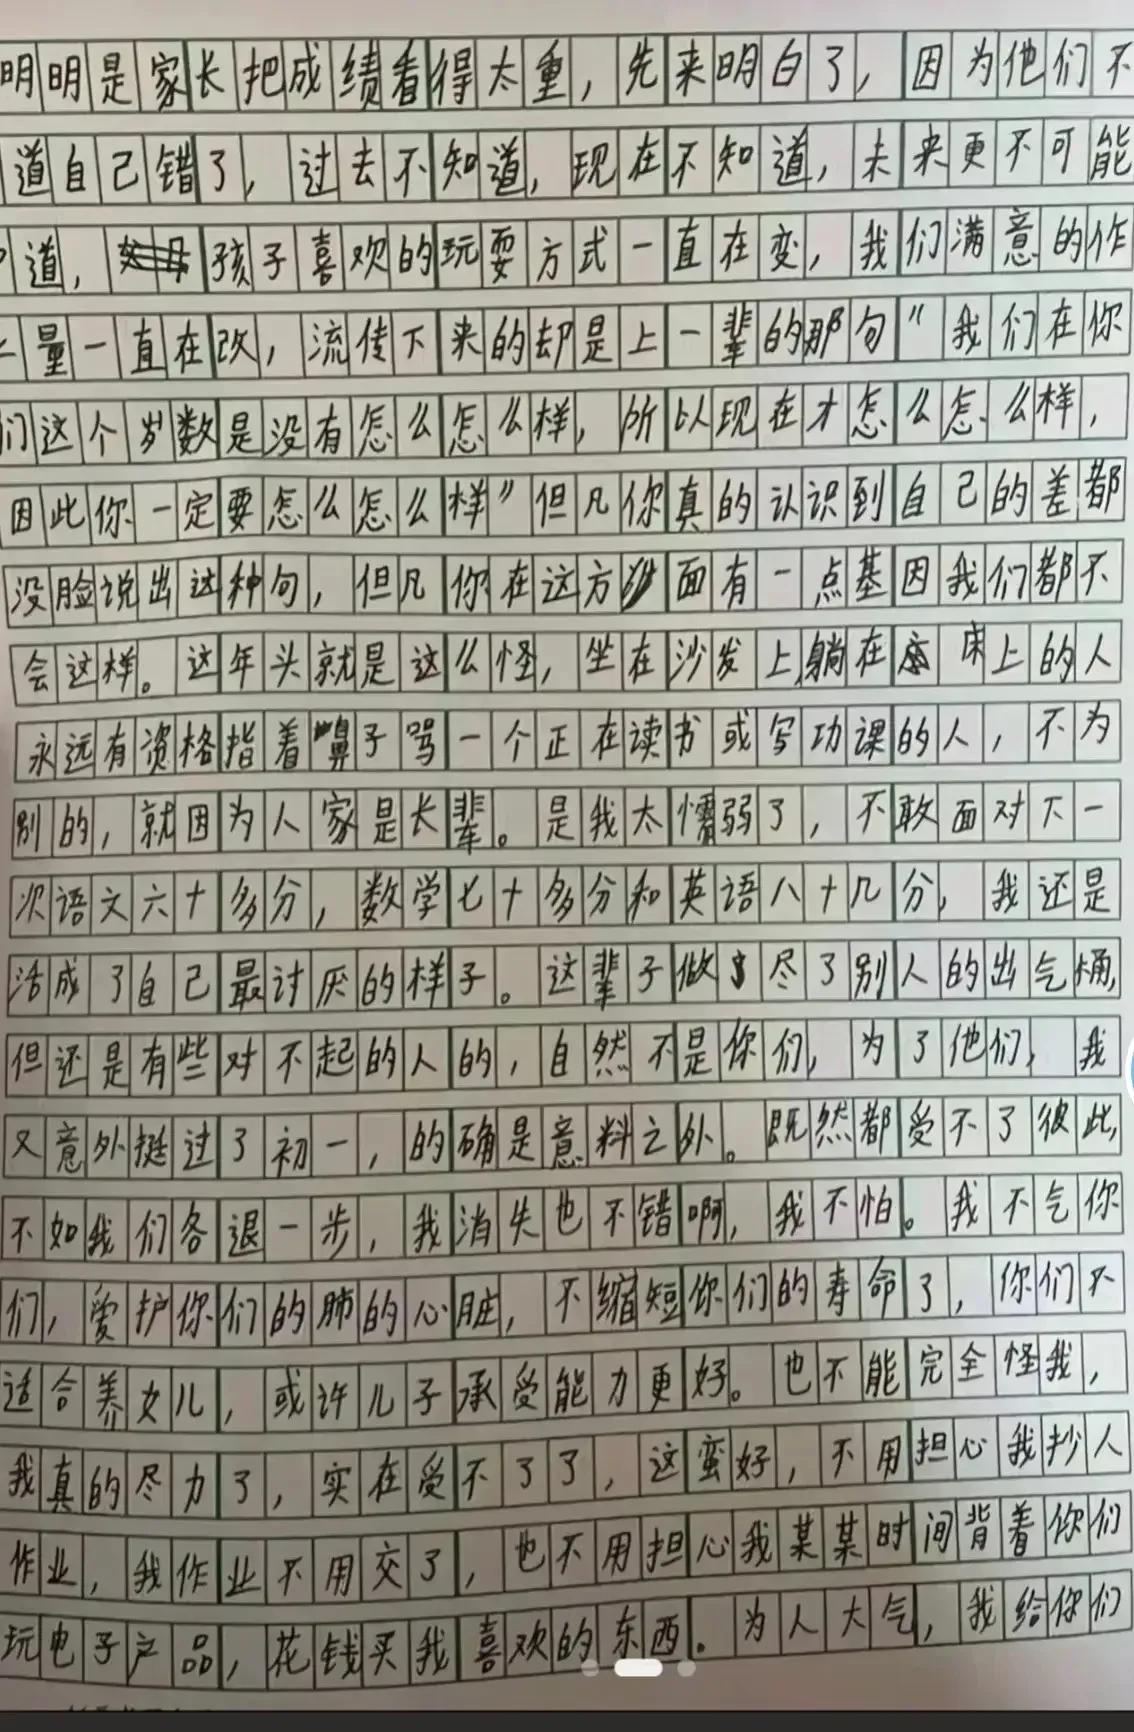 明明是家长把成绩看得太重，先来明白了，因为他们不
道自己错了，过去不知道，现在不知道，未来更不可能
道，孩子喜欢的玩耍方式一直在变，我们满意的作
量一直在改，流传下来的却是上一辈的那句“我们在你
们这个岁数是没有怎么怎么样，所以现在才怎么怎么样，
因此你一定要怎么怎么样”但凡你真的认识到自己的差都
没脸说出这种句，但凡你在这方面有一点基因我们都不
会这样。这年头就是这么怪，坐在沙发上，躺在床上的人
永远有资格指着鼻子骂一个正在读书或写功课的人，不为
别的，就因为人家是长辈。是我太懦弱了，不敢面对下一
次语文六十多分，数学七十多分和英语八十几分，我还是
活成了自己最讨厌的样子。这辈子做尽了别人的出气桶，
但还是有些对不起的人的，自然不是你们，为了他们，我
又意外挺过了初一，的确是意料之外。既然都受不了彼此，
不如我们各退一步，我消失也不错啊，我不怕。我不气你
们，爱护你们的肺的心脏，不缩短你们的寿命了，你们不
适合养女儿，或许儿子承受能力更好。也不能完全怪我，
我真的尽力了，实在受不了了，这蛮好，不用担心我抄人
作业，我作业不用交了，也不用担心我某某时间背着你们
玩电子产品，花钱买我喜欢的东西。为人大气，我给你们